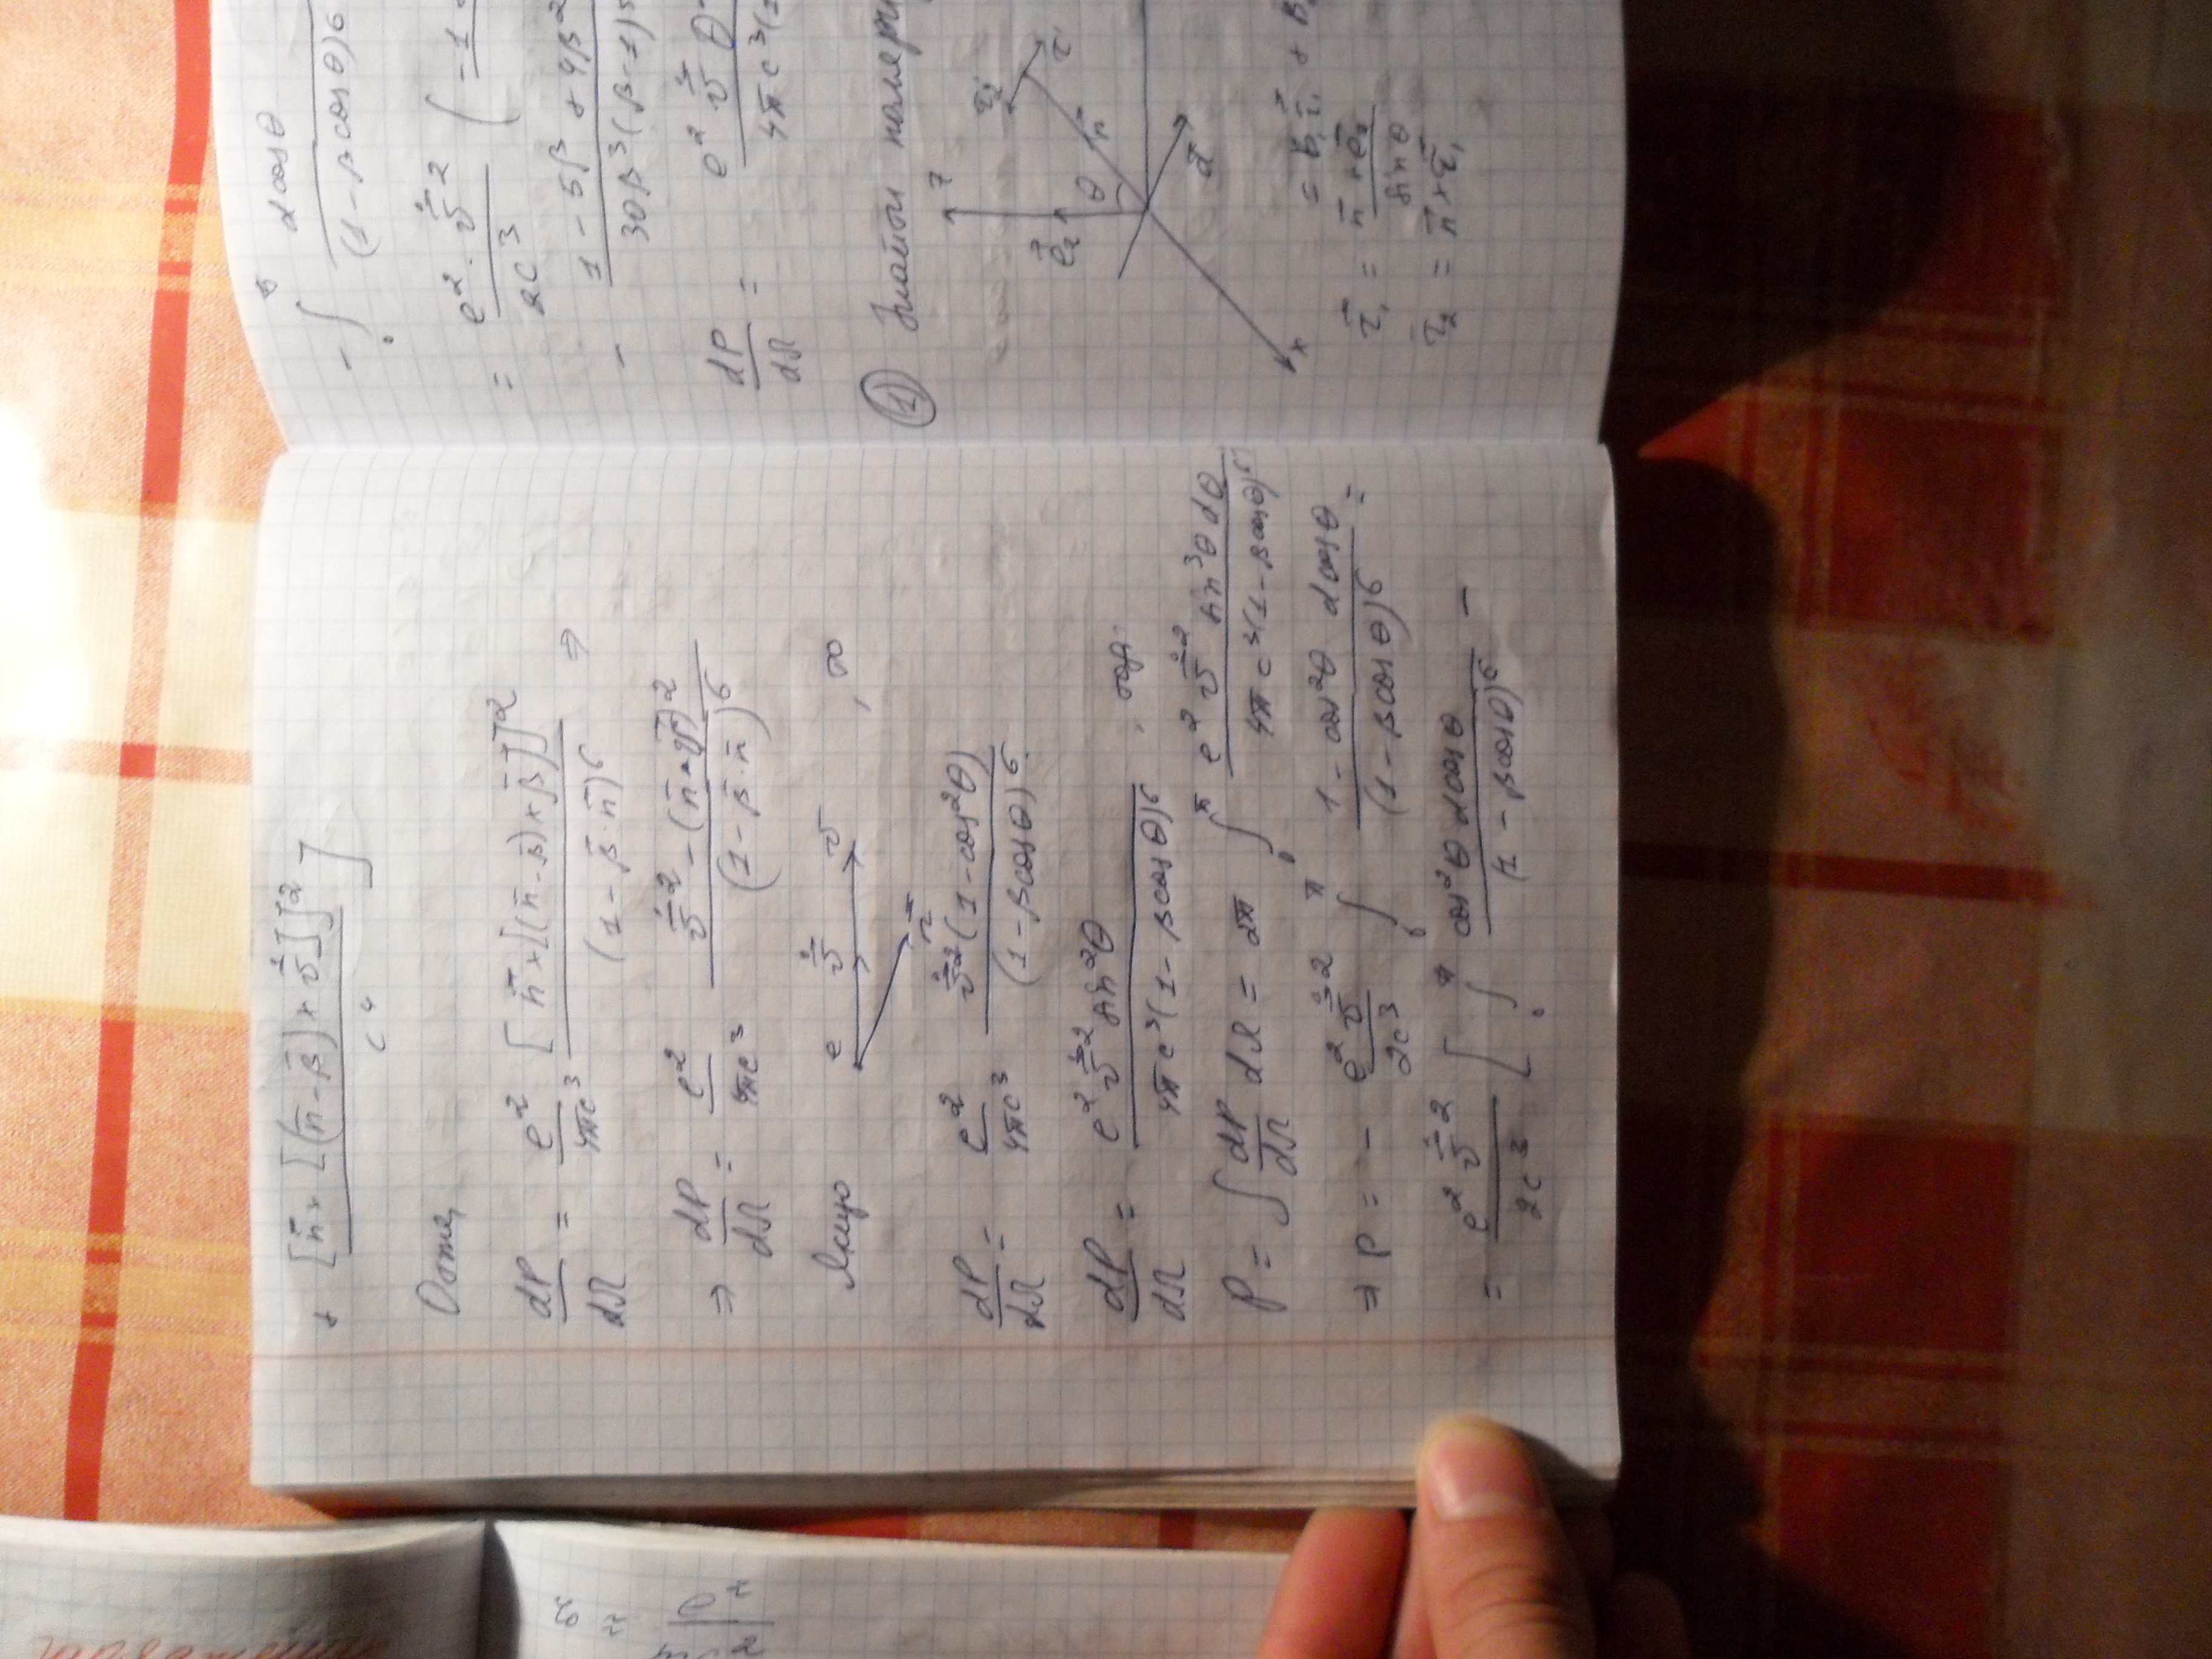 + [n̄×[(n̄-β̄)×v̄̇]]² / c⁴ ]
Отже,
dP/dΩ = e²/4πc³ [n̄×[(n̄-β̄)×β̄]]² / (1-β̄·n̄)⁶ ⇒
⇒ dP/dΩ = e²/4πc³ (v̄̇² - (n̄·v̄̇)²) / (1-β̄·n̄)⁶
Якщо e v̄̇ v̄ n̄ , то
dP/dΩ = e²/4πc³ v̄̇²(1-cos²θ) / (1-βcosθ)⁶
dP/dΩ = e² v̄̇² sin²θ / 4πc³(1-βcosθ)⁶ , тоді
P = ∫ dP/dΩ dΩ = 2π ∫₀^π e² v̄̇² sin³θ dθ / 4πc³(1-βcosθ)⁶
⇒ P = - e² v̄̇² / 2c³ ∫₀^π (1-cos²θ) dcosθ / (1-βcosθ)⁶ =
= e² v̄̇² / 2c³ [ ∫₀^π cos²θ dcosθ / (1-βcosθ)⁶ -
- ∫₀^π dcosθ / (1-βcosθ)⁶
= e²·v̄̇² / 2c³ ( -1
- 1-5β+4β² / 30β³(β-1)⁵
dP/dΩ = e² v̄̇ / 4πc³(1
① Знайти
z τ̄₂ τ̄₁ ē_z θ n̄ d̄ x
= B₁τ̄₁ + B₂
τ̄₁ = n̄×ē_z / sinθ
τ̄₂ = n̄×τ̄₁